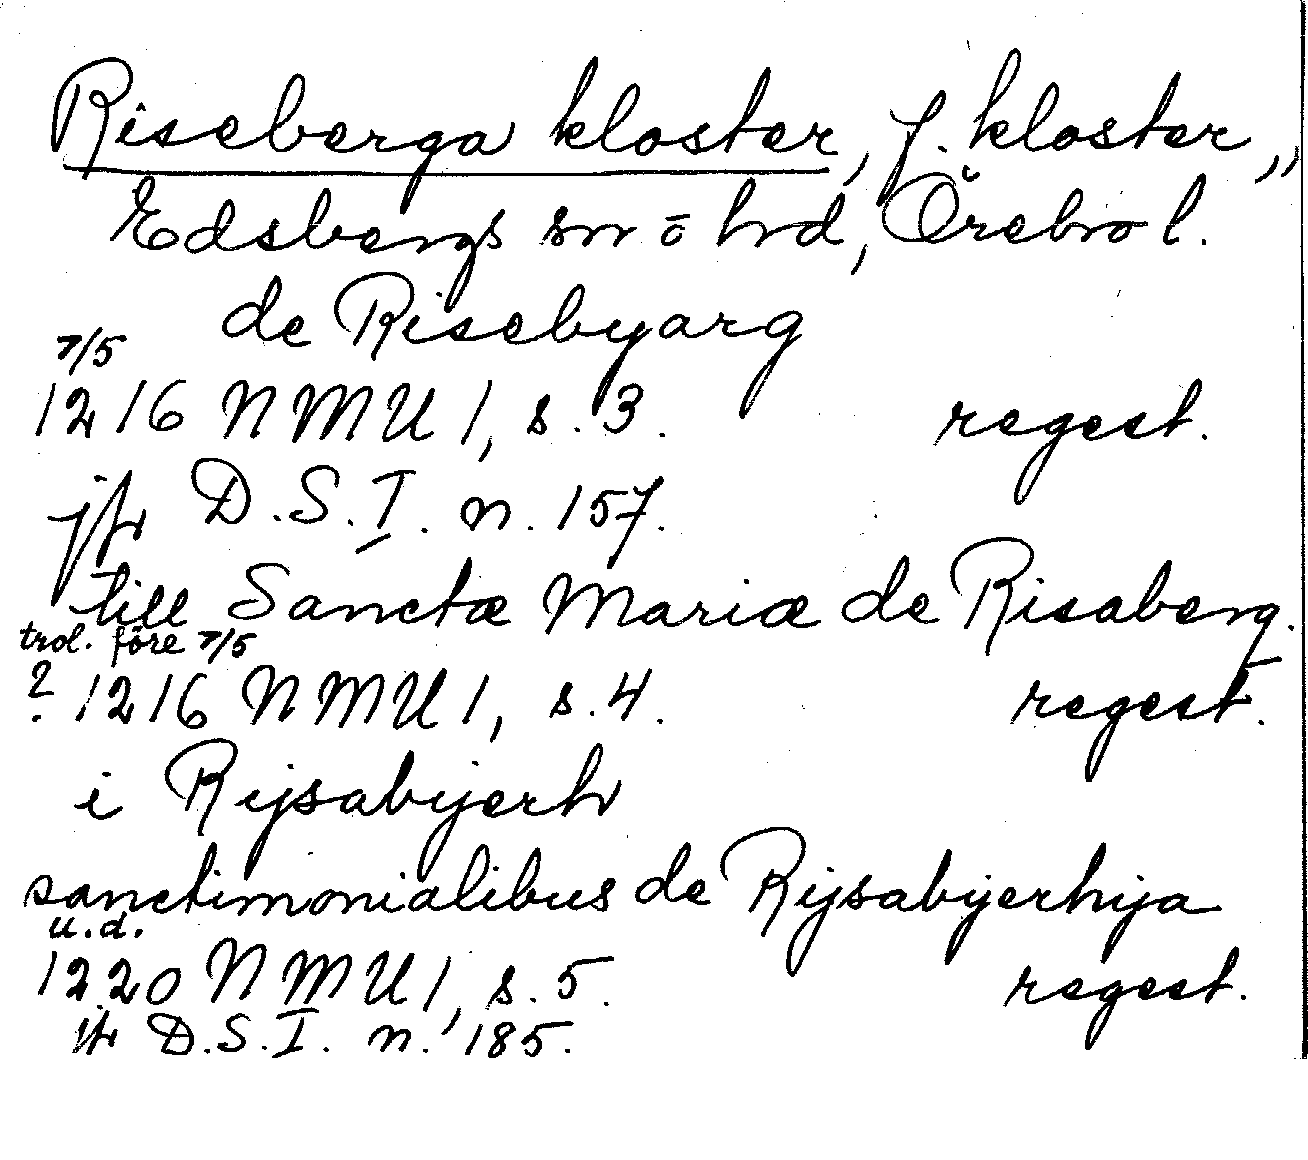 Riseberga kloster, f. kloster,,
Edsbergs sn o hrd, Örebro l.
de Risebyarg
7/5
1216 NMU 1, s. 3. regest.
jfr D.S.I. n. 157.
till Sanctæ Mariæ de Risaberg.
trol. före 7/5
? 1216 NMU 1, s. 4. regest.
i Rijsabijerh
sanctimonialibus de Rijsabijerhija
u.d.
1220 NMU 1, s. 5. regest.
jfr D.S.I. n. 185.